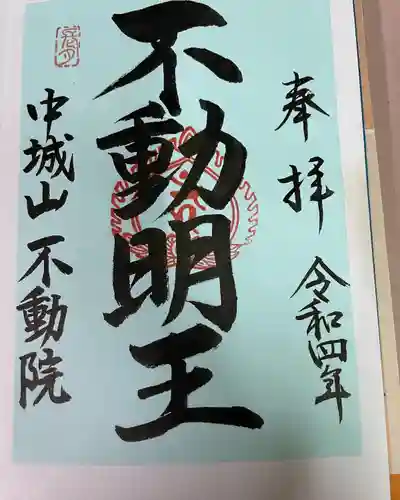 奉拝
令和四年
不動明王
中城山 不動院